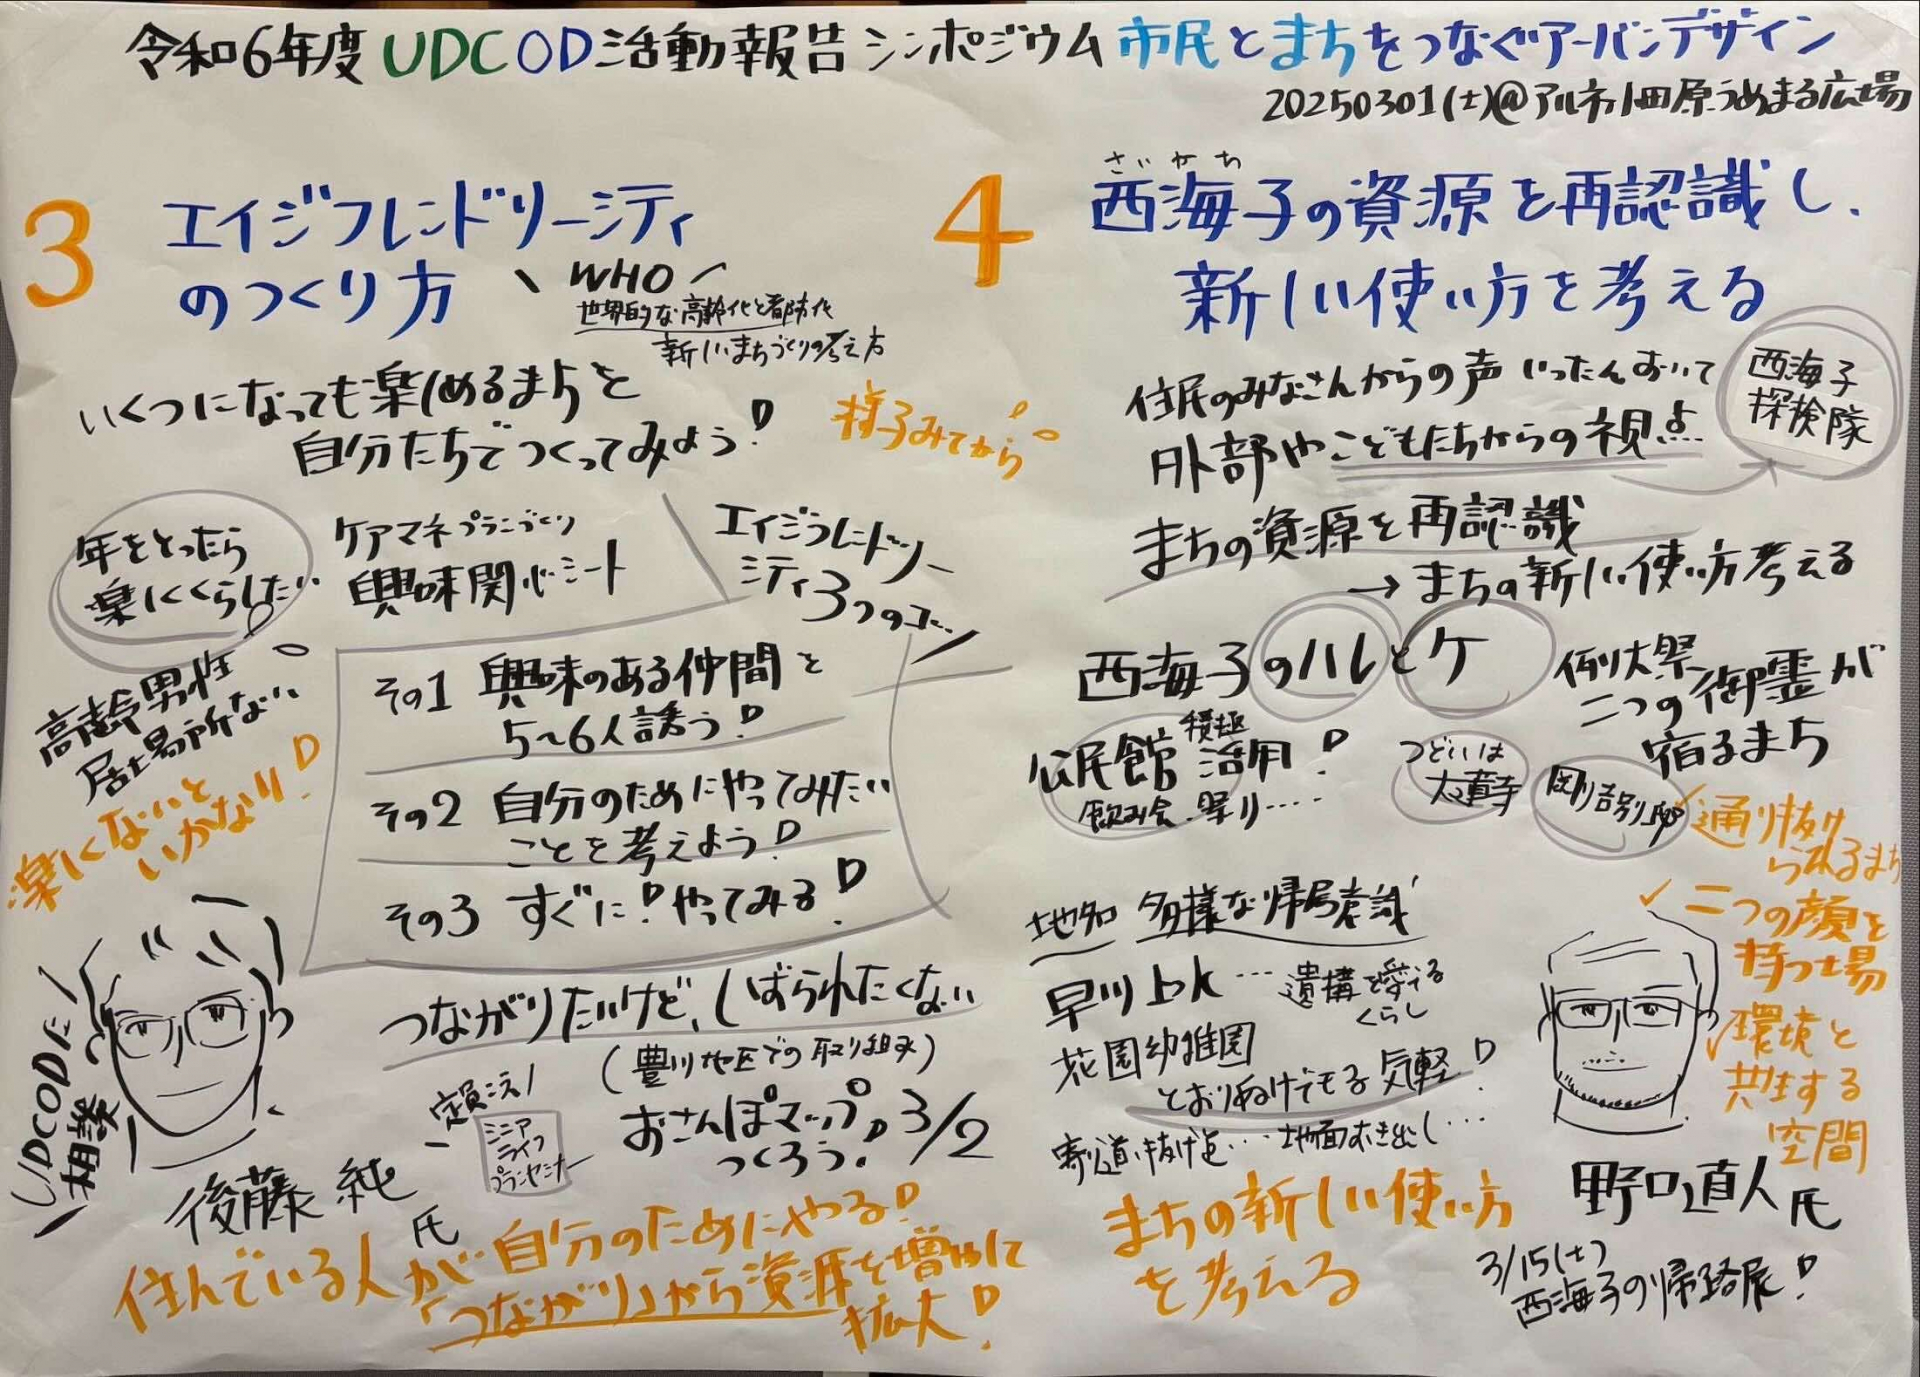 令和6年度 UDCOD活動報告シンポジウム 市民とまちをつなぐアーバンデザイン
20250301(土)@アルネ小田原うめまる広場
3
エイジフレンドリーシティ
のつくり方
WHO
世界的な高齢化と都市化
新しいまちづくりの考え方
いくつになっても楽しめるまちを
自分たちでつくってみよう!
様子みてから
年をとったら
楽しくくらしたい
ケアマネプランづくり
興味関心シート
エイジフレンドリー
シティ3つのコツ
高齢男性
居場所ない
楽しくないと
いかない!
その1 興味のある仲間を
5〜6人誘う!
その2 自分のためにやってみたい
ことを考えよう!
その3 すぐに!やってみる!
つながりたいけど、しばられたくない
(豊川地区での取り組み)
定員こえ!
シニア
ライフ
プランセミナー
おさんぽマップ
つくろう! 3/2
UDCODに
相談
後藤 純
氏
住んでいる人が自分のためにやる!
「つながり」から資源を増やして
拡大!
4
さいかち
西海子の資源を再認識し、
新しい使い方を考える
住民のみなさんからの声 いったんおいて
外部やこどもたちからの視点
西海子
探検隊
まちの資源を再認識
→まちの新しい使い方考える
西海子のハレとケ
例大祭
二つの御霊が
宿るまち
公民館 積極
活用!
飲み会、祭り‥‥
つどいは
大蓮寺
通り抜け
られるまち
✓二つの顔を
持つ場
✓環境と
共生する
空間
地名 多様な帰属意識
早川上k … 遺構を愛でる
くらし
花園幼稚園
とおりぬけできる気軽!
寄り道、抜け道… 地面むき出し…
まちの新しい使い方
を考える
野口直人氏
3/15(土)
西海子の帰路展!